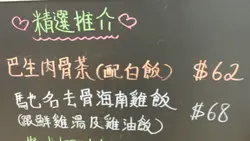 精選推介
巴生肉骨茶(配白飯) $62
馳名去骨海南雞飯
(跟鮮雞湯及雞油飯) $68